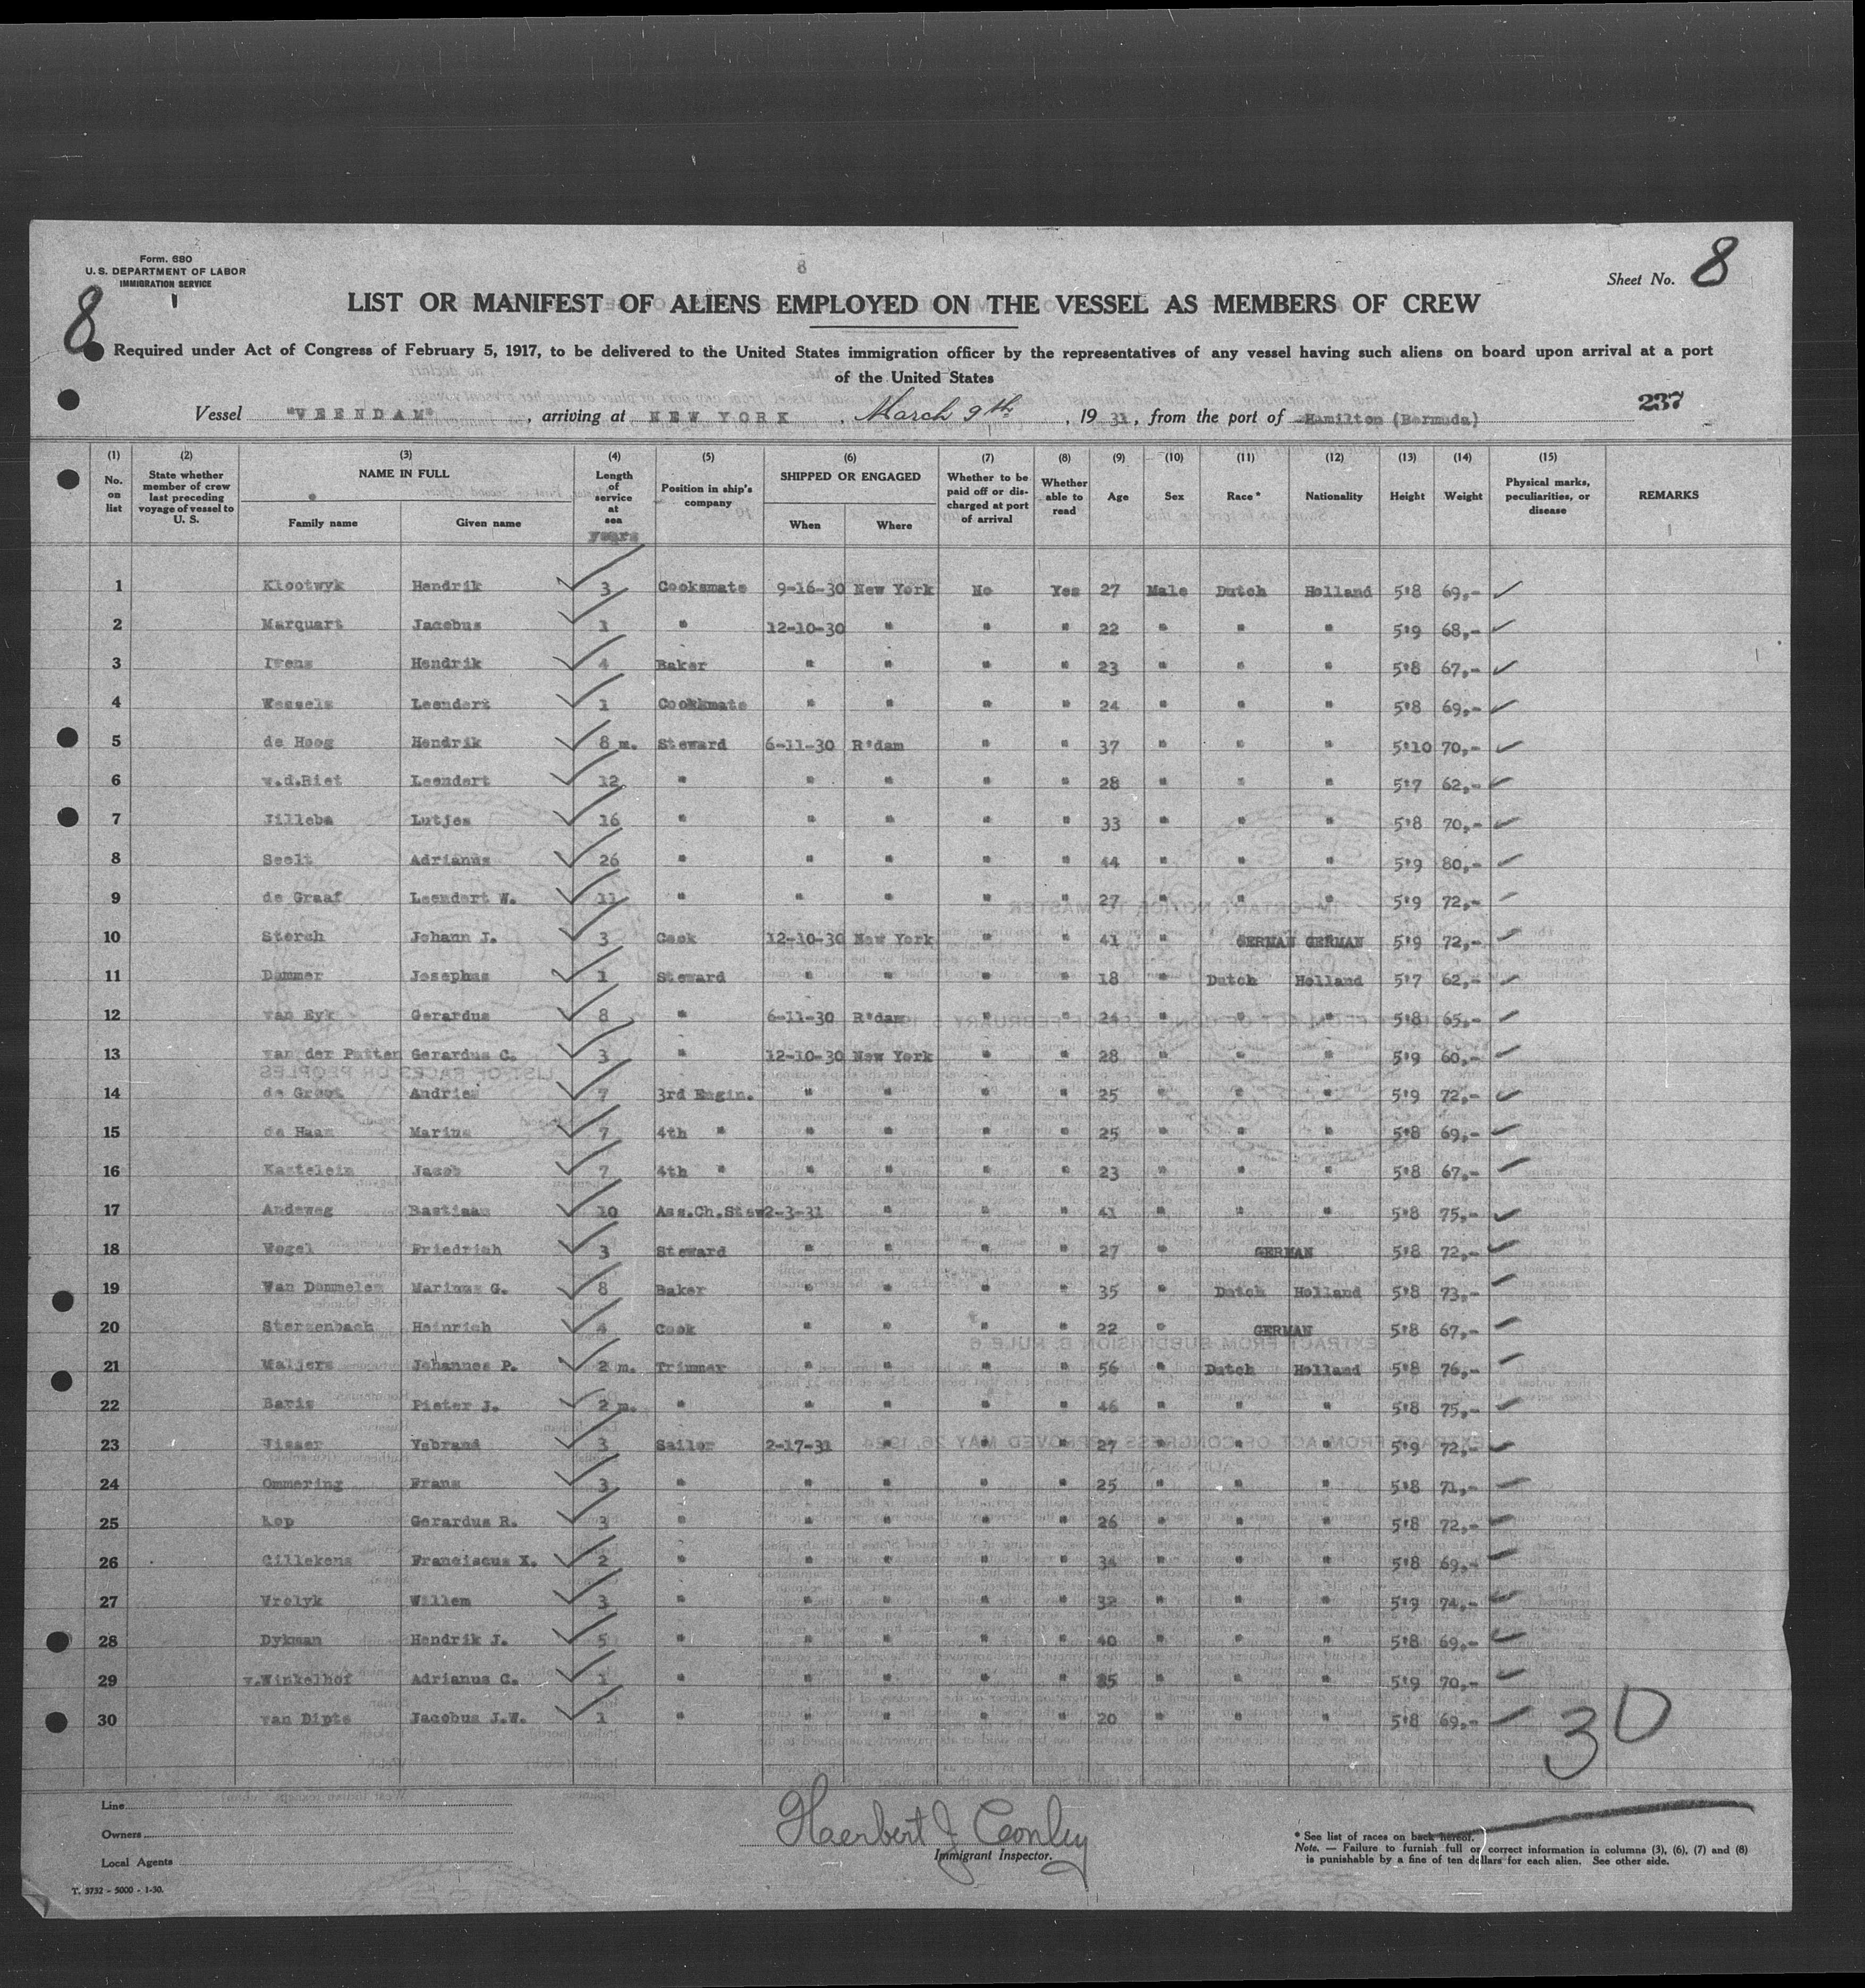 8
Form. 680
U. S. DEPARTMENT OF LABOR
IMMIGRATION SERVICE
Sheet No. 8
8
LIST OR MANIFEST OF ALIENS EMPLOYED ON THE VESSEL AS MEMBERS OF CREW
Required under Act of Congress of February 5, 1917, to be delivered to the United States immigration officer by the representatives of any vessel having such aliens on board upon arrival at a port
of the United States
237
Vessel "VEENDAM", arriving at NEW YORK, March 9th, 1931, from the port of Hamilton (Bermuda)
(1) (2) (3) (4) (5) (6) (7) (8) (9) (10) (11) (12) (13) (14) (15)
No. on list State whether member of crew last preceding voyage of vessel to U. S. NAME IN FULL Family name Given name Length of service at sea years Position in ship's company SHIPPED OR ENGAGED When Where Whether to be paid off or discharged at port of arrival Whether able to read Age Sex Race* Nationality Height Weight Physical marks, peculiarities, or disease REMARKS
1 Klootwyk Hendrik 3 Cooksmate 9-16-30 New York No Yes 27 Male Dutch Holland 5'8 69,-
2 Marquart Jacobus 1 " 12-10-30 " " " 22 " " " 5'9 68,-
3 Iwens Hendrik 4 Baker " " " " 23 " " " 5'8 67,-
4 Wessels Leendert 1 Cooksmate " " " " 24 " " " 5'8 69,-
5 de Hoog Hendrik 8 m. Steward 6-11-30 R'dam " " 37 " " " 5'10 70,-
6 v.d.Riet Leendert 12 " " " " " 28 " " " 5'7 62,-
7 Jilleba Lutjes 16 " " " " " 33 " " " 5'8 70,-
8 Seelt Adrianus 26 " " " " " 44 " " " 5'9 80,-
9 de Graaf Leendert W. 11 " " " " " 27 " " " 5'9 72,-
10 Storch Johann J. 3 Cook 12-10-30 New York " " 41 " GERMAN GERMAN 5'9 72,-
11 Dammer Josephus 1 Steward " " " " 18 " Dutch Holland 5'7 62,-
12 van Eyk Gerardus 8 " 6-11-30 R'dam " " 24 " " " 5'8 65,-
13 van der Putten Gerardus C. 3 " 12-10-30 New York " " 28 " " " 5'9 60,-
14 de Groot Andries 7 3rd Engin. " " " " 25 " " " 5'9 72,-
15 de Haan Marius 7 4th " " " " " 25 " " " 5'8 69,-
16 Kastelein Jacob 7 4th " " " " " 23 " " " 5'8 67,-
17 Andeweg Bastiaan 10 Ass.Ch.Stew 2-3-31 " " " 41 " " " 5'8 75,-
18 Vogel Friedrich 3 Steward " " " " 27 " GERMAN 5'8 72,-
19 Van Dommelen Marinus G. 8 Baker " " " " 35 " Dutch Holland 5'8 73,-
20 Sterzenbach Heinrich 4 Cook " " " " 22 " GERMAN 5'8 67,-
21 Maljers Johannes P. 2 m. Trimmer " " " " 56 " Dutch Holland 5'8 76,-
22 Baris Pieter J. 2 m. " " " " " 46 " " " 5'8 75,-
23 Visser Ysbrand 3 Sailor 2-17-31 " " " 27 " " " 5'9 72,-
24 Ommering Frans 3 " " " " " 25 " " " 5'8 71,-
25 Rop Gerardus R. 3 " " " " " 26 " " " 5'8 72,-
26 Gillekens Franciscus X. 2 " " " " " 34 " " " 5'8 69,-
27 Vrolyk Willem 3 " " " " " 32 " " " 5'9 74,-
28 Dykman Hendrik J. 5 " " " " " 40 " " " 5'8 69,-
29 v.Winkelhof Adrianus C. 1 " " " " " " " " 5'9 70,-
30 van Dipte Jacobus J.W. 1 " " " " " 20 " " " 5'8 69,-
30
Line
Owners
Local Agents
Haerbert J Conley
Immigrant Inspector.
* See list of races on back hereof.
Note. — Failure to furnish full or correct information in columns (3), (6), (7) and (8)
is punishable by a fine of ten dollars for each alien. See other side.
T. 3732 - 5000 - 1-30.